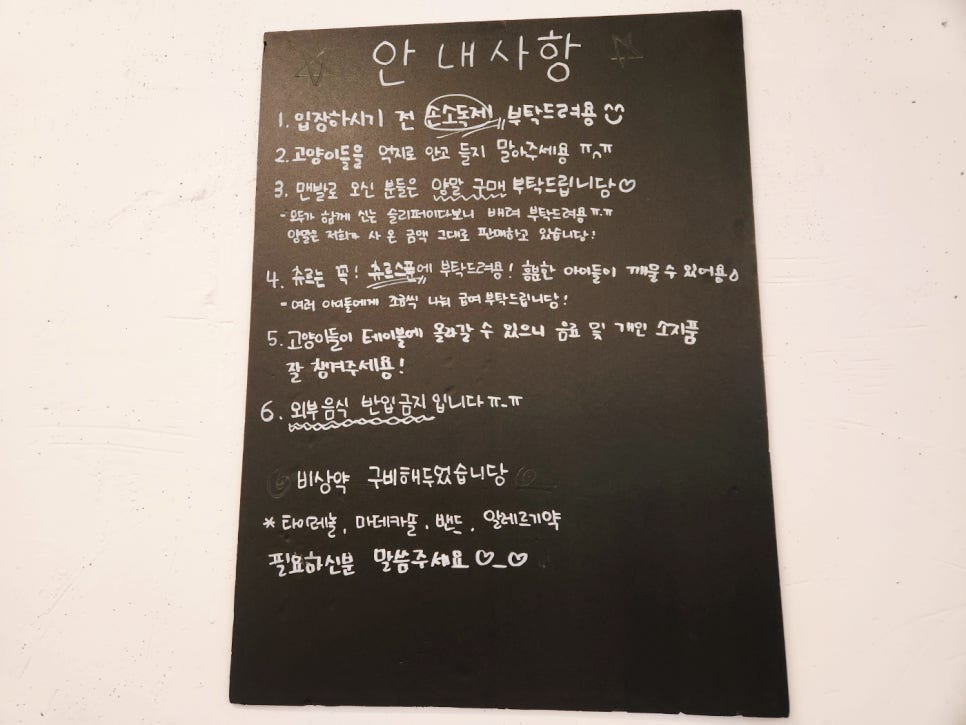 안내사항
1. 입장하시기 전 손소독제 부탁드려용
2. 고양이들을 억지로 안고 들지 말아주세용 ㅠ^ㅠ
3. 맨발로 오신 분들은 양말 구매 부탁드립니당♡
- 모두가 함께 신는 슬리퍼이다보니 배려 부탁드려용 ㅠ.ㅠ
양말은 저희가 사 온 금액 그대로 판매하고 있습니당!
4. 츄르는 꼭! 츄르스푼에 부탁드려용! 흥분한 아이들이 깨물 수 있어용
- 여러 아이들에게 조금씩 나눠 급여 부탁드립니당!
5. 고양이들이 테이블에 올라갈 수 있으니 음료 및 개인 소지품
잘 챙겨주세용!
6. 외부음식 반입금지입니다 ㅠ_ㅠ
비상약 구비해두었습니당
* 타이레놀, 마데카솔, 밴드, 알레르기약
필요하신분 말씀주세요 ♡_♡